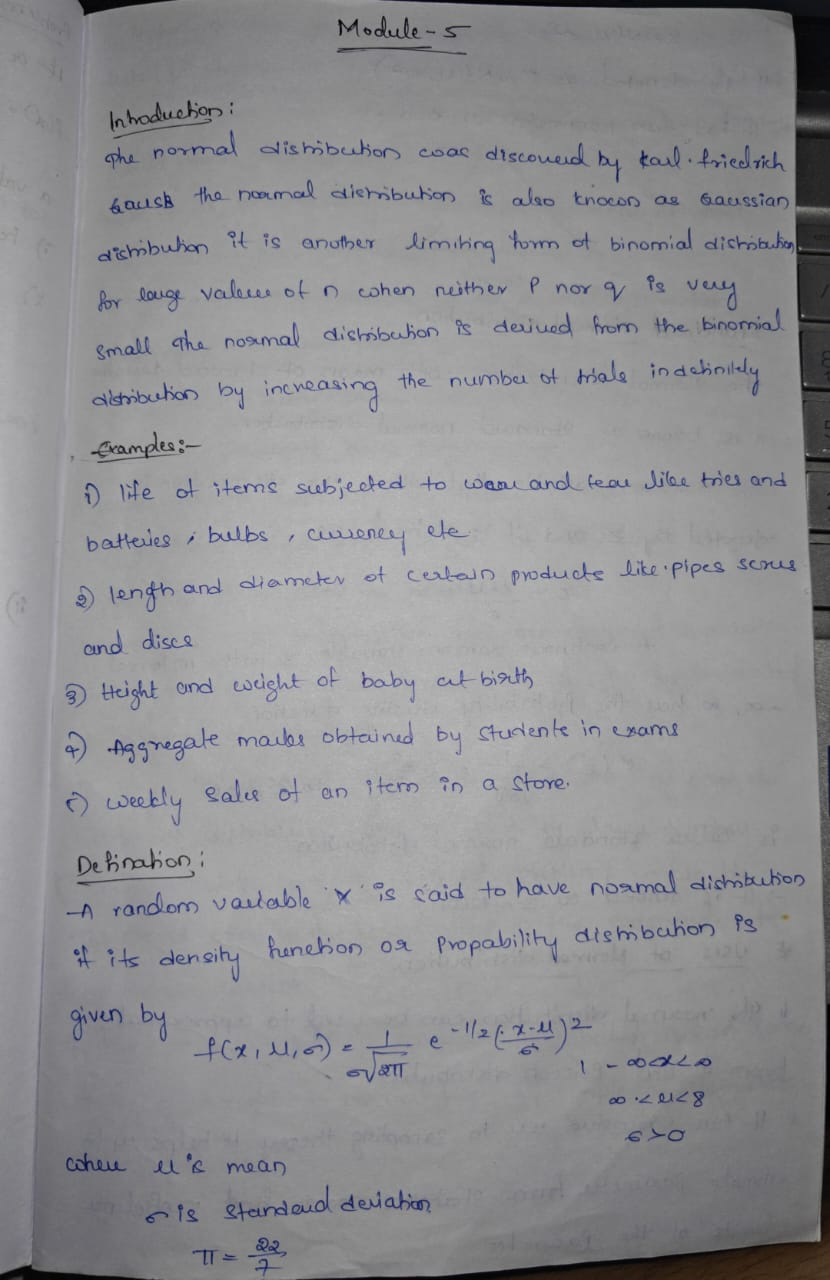 Module - 5
Introduction :
The normal distribution was discovered by Karl. friedrich
Gauss the normal distribution is also known as Gaussian
distribution it is another limiting form of binomial distribution
for large values of n when neither P nor q is very
small The normal distribution is derived from the binomial
distribution by increasing the number of trials indefinitely
Examples :-
1) life of items subjected to wear and tear like tries and
batteries , bulbs , currency etc
2) length and diameter of certain products like . pipes scrus
and discs
3) Height and weight of baby at birth
4) Aggregate marks obtained by students in exams
5) weekly sales of an item in a store.
Defination :
A random variable 'x' is said to have normal distribution
if its density function or Propability distribution is
given by
f(x, μ, σ) = 1/σ√2π e^-1/2(x-μ/σ)^2
, -∞<x<∞
∞ < μ < 8
σ > 0
where μ is mean
σ is standard deviation
π = 22/7